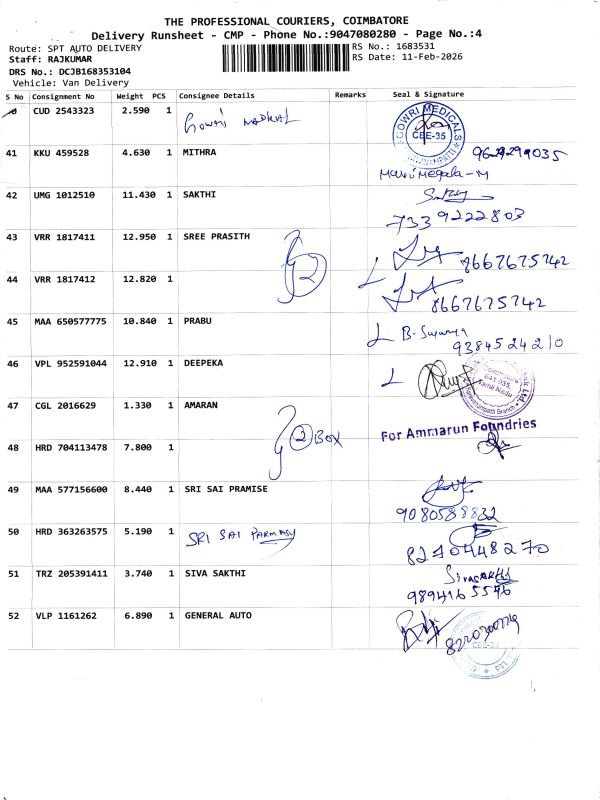 THE PROFESSIONAL COURIERS, COIMBATORE
Delivery Runsheet - CMP - Phone No.:9047080280 - Page No.:4
Route: SPT AUTO DELIVERY
RS No.: 1683531
Staff: RAJKUMAR
RS Date: 11-Feb-2026
DRS No.: DCJB168353104
Vehicle: Van Delivery
S No Consignment No Weight PCS Consignee Details Remarks Seal & Signature
CUD 2543323 2.590 1 Gowri MADICAL
GOWRI MEDICALS
CBE-35
41 KKU 459528 4.630 1 MITHRA
42 UMG 1012510 11.430 1 SAKTHI
7339222803
43 VRR 1817411 12.950 1 SREE PRASITH 2
8667675742
44 VRR 1817412 12.820 1
8667675742
45 MAA 650577775 10.840 1 PRABU
9384524210
46 VPL 952591044 12.910 1 DEEPEKA
641 035
Tamil Nadu
47 CGL 2016629 1.330 1 AMARAN
For Ammarun Foundries
2 Box
48 HRD 704113478 7.800 1
49 MAA 577156600 8.440 1 SRI SAI PRAMISE
9080588832
50 HRD 363263575 5.190 1 SRI SAI PARMASY
8270448270
51 TRZ 205391411 3.740 1 SIVA SAKTHI
Sivasakthi
9894165546
52 VLP 1161262 6.890 1 GENERAL AUTO
CBE-35